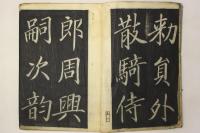 勑員外
散騎侍
郎周興
嗣次韵